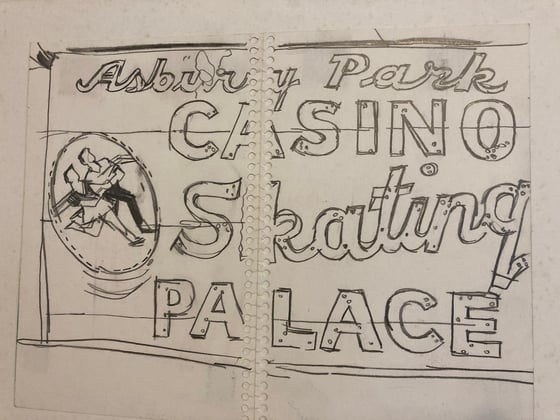 Asbury Park
CASINO
Skating
PALACE